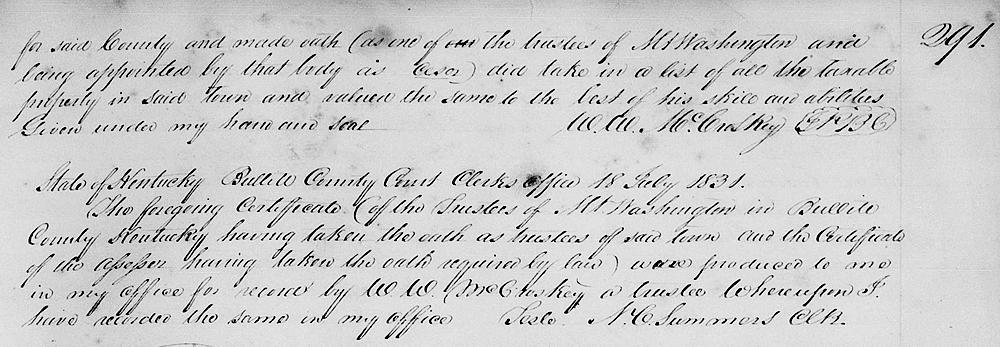 291.
for said County and made oath (as one of the trustees of Mt Washington and
being appointed by that body as Ceser) did take in a list of all the taxable
property in said town and valued the same to the best of his skill and abilities
Given under my hand and seal W. W. McCroskey JPBC
State of Kentucky Bullitt County Court Clerks office 18 July 1831.
The foregoing Certificate (of the Trustees of Mt Washington in Bullitt
County Kentucky having taken the oath as trustees of said town and the Certificate
of the assesser having taken the oath required by law) were produced to me
in my office for record by W. W. McCroskey a trustee Whereupon I
have recorded the same in my office Teste. N. C. Summers Clk.